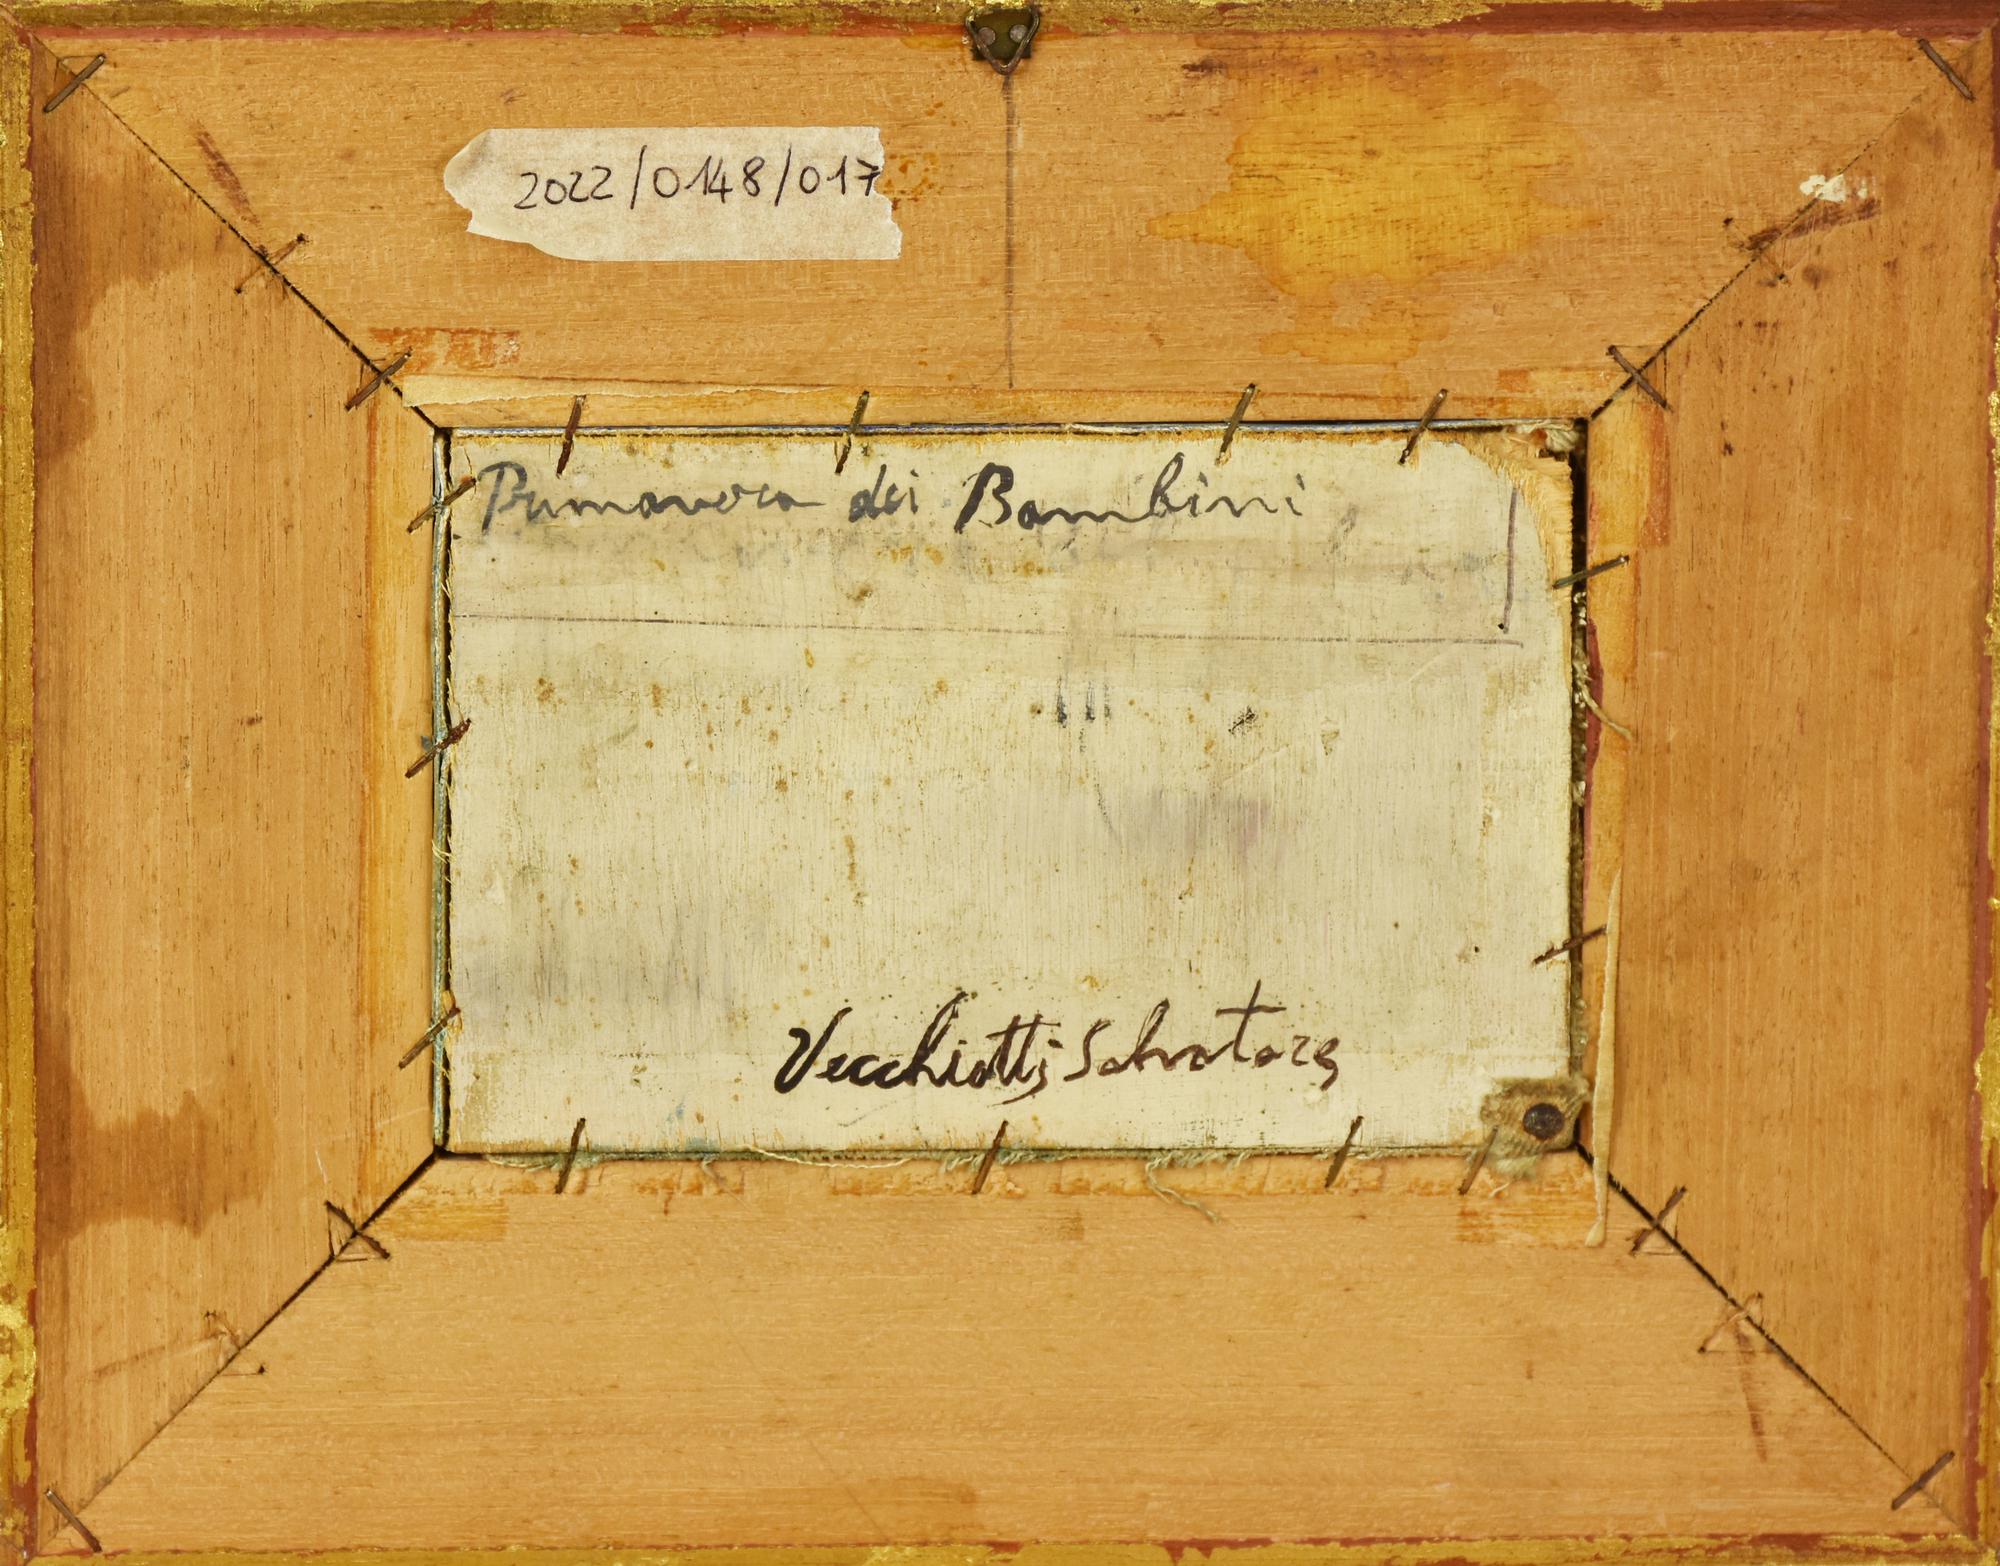 2022/0148/017
Primavera dei Bambini
Vecchiotti Salvatore